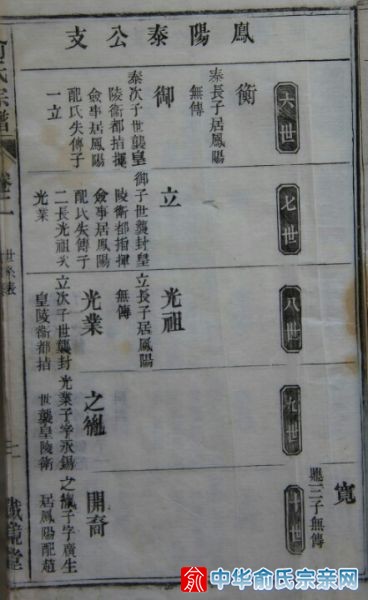 鳳陽泰公支
六世
衡
泰長子居鳳陽
無傳
御
泰次子世襲皇
陵衛都指揮
僉事居鳳陽
配氏失傳子
一立
七世
立
御子世襲封皇
陵衛都指揮
僉事居鳳陽
配氏失傳子
二長光祖次
光業
八世
光祖
立長子居鳳陽
無傳
光業
立次子世襲封
皇陵衛都指
九世
之
光業子字永錫
世襲皇陵衛
十世
寬
三子無傳
開
之 子字廣生
居鳳陽配趙
俞氏宗譜
卷二
世系表
堂
俞 中华俞氏宗亲网